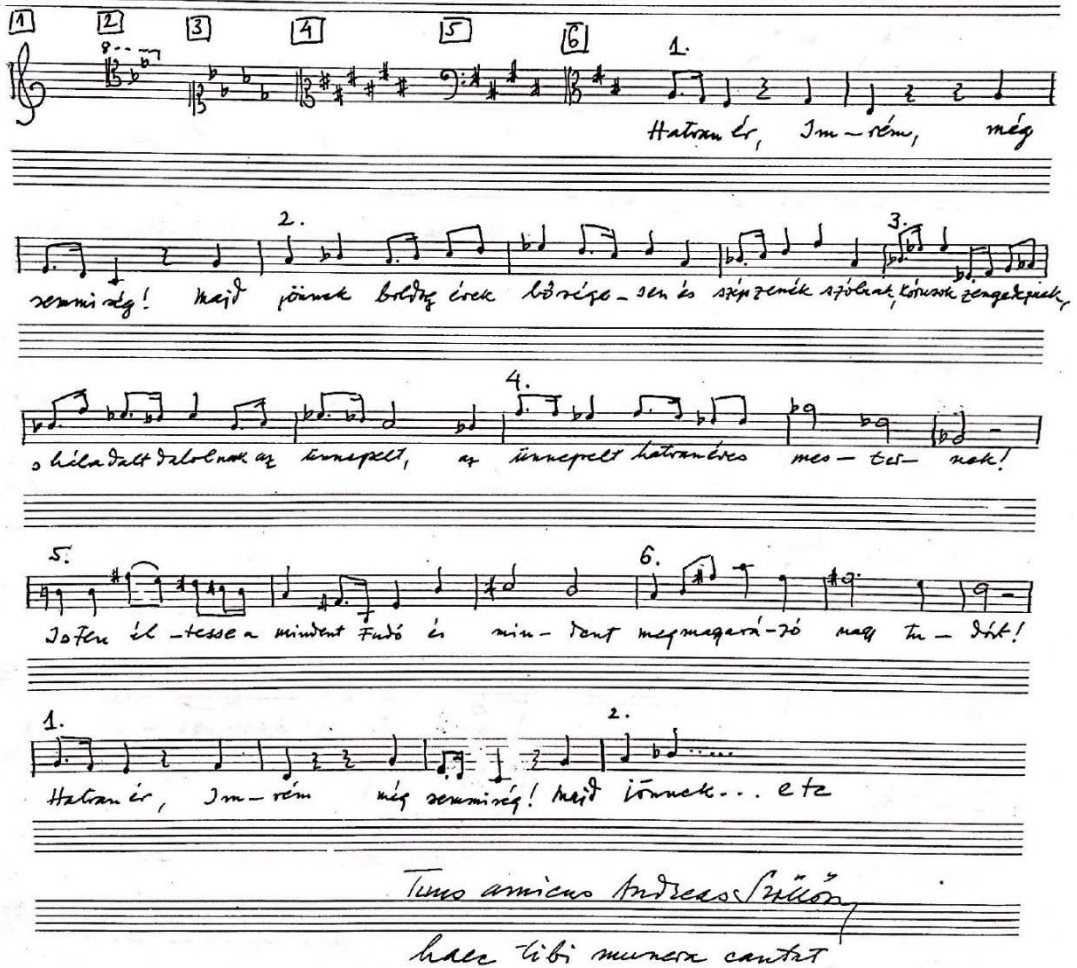 1 2 3 4 5 6 1.
8
Hatvan év, Im-rém, még
2. 3.
semmiség! Majd jönnek boldog évek bősége-sen és szép zenék szólnak, kórusok zengedeznek,
4.
s hála dalt dalolnak az ünnepelt, az ünnepelt hatvanéves mes-ter-nek!
5. 6.
Isten él-tesse a mindent tudó és min-dent megmagyará-zó nagy tu-dóst!
1. 2.
Hatvan év, Im-rém még semmiség! Majd jönnek... etc
Tuus amicus Andreas Szőllősy
haec tibi munera cantat